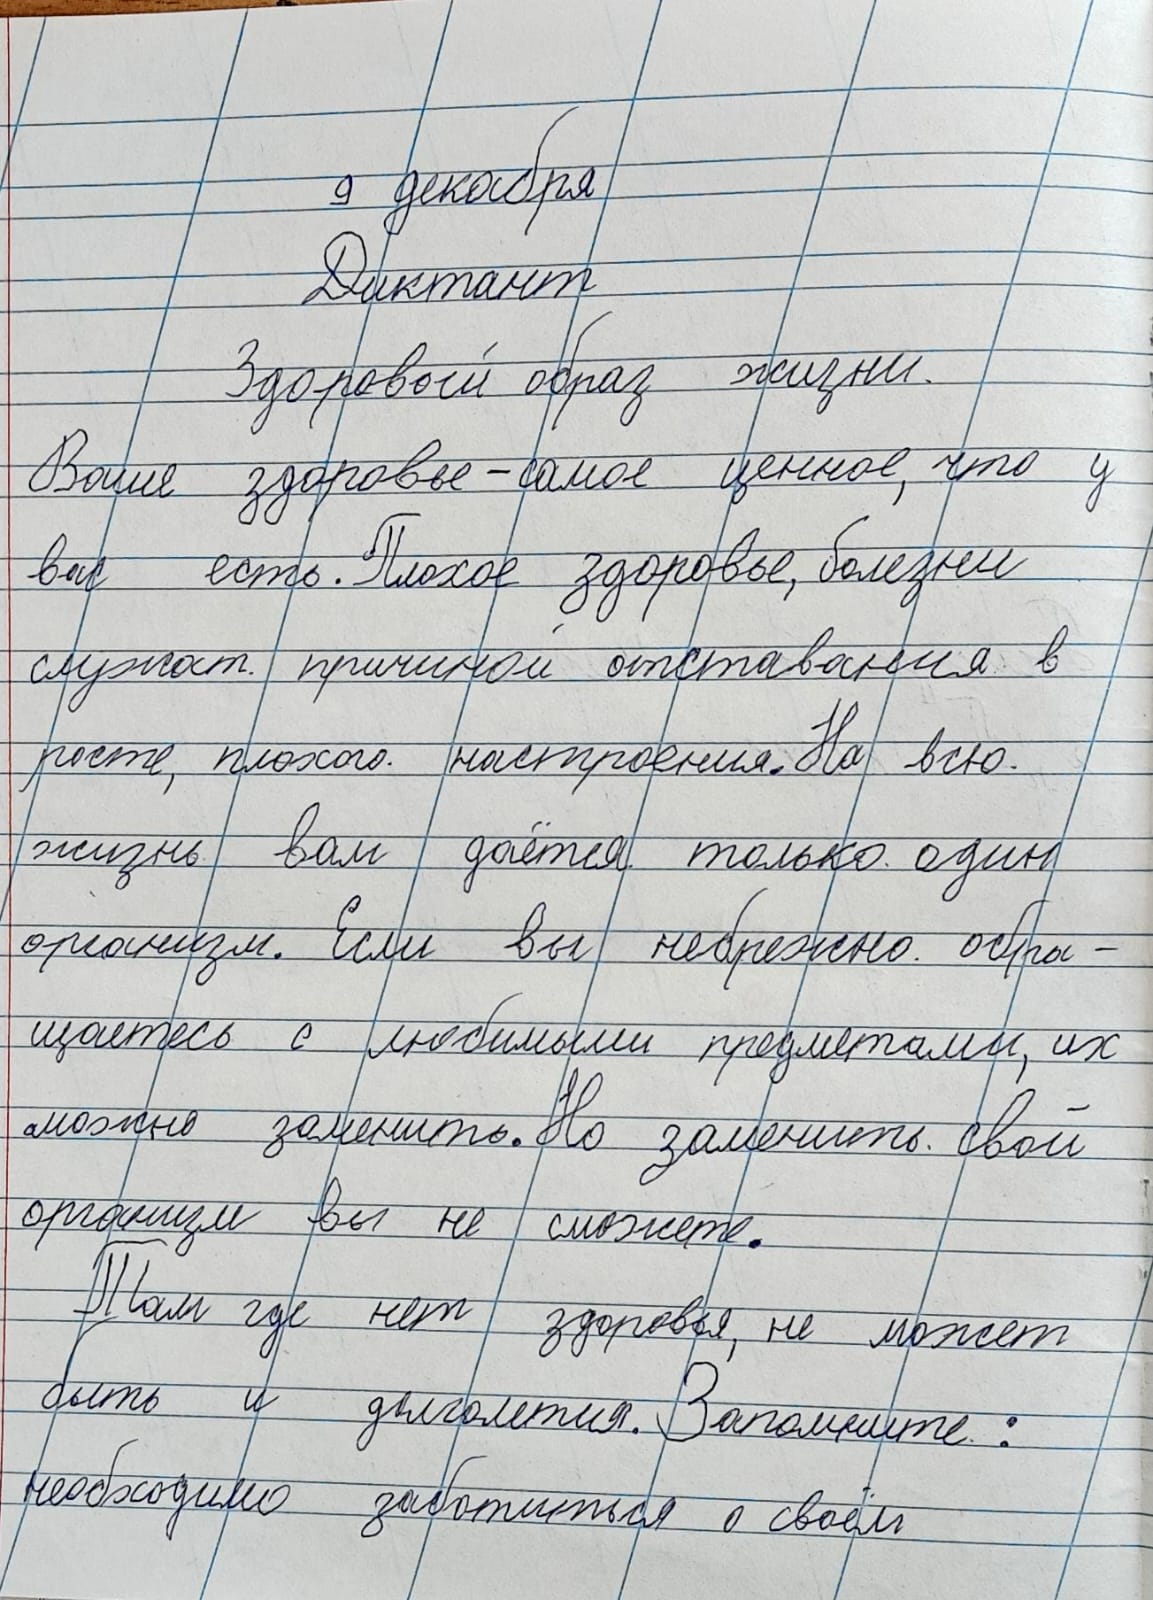 9 декабря
Диктант
Здоровый образ жизни.
Ваше здоровье - самое ценное, что у
вас есть. Плохое здоровье, болезни
служат причиной отставания в
росте, плохого настроения. На всю
жизнь вам даётся только один
организм. Если вы небрежно обра-
щаетесь с любимыми предметами, их
можно заменить. Но заменить свой
организм вы не сможете.
Там где нет здоровья, не может
быть и долголетия. Запомните:
необходимо заботиться о своём